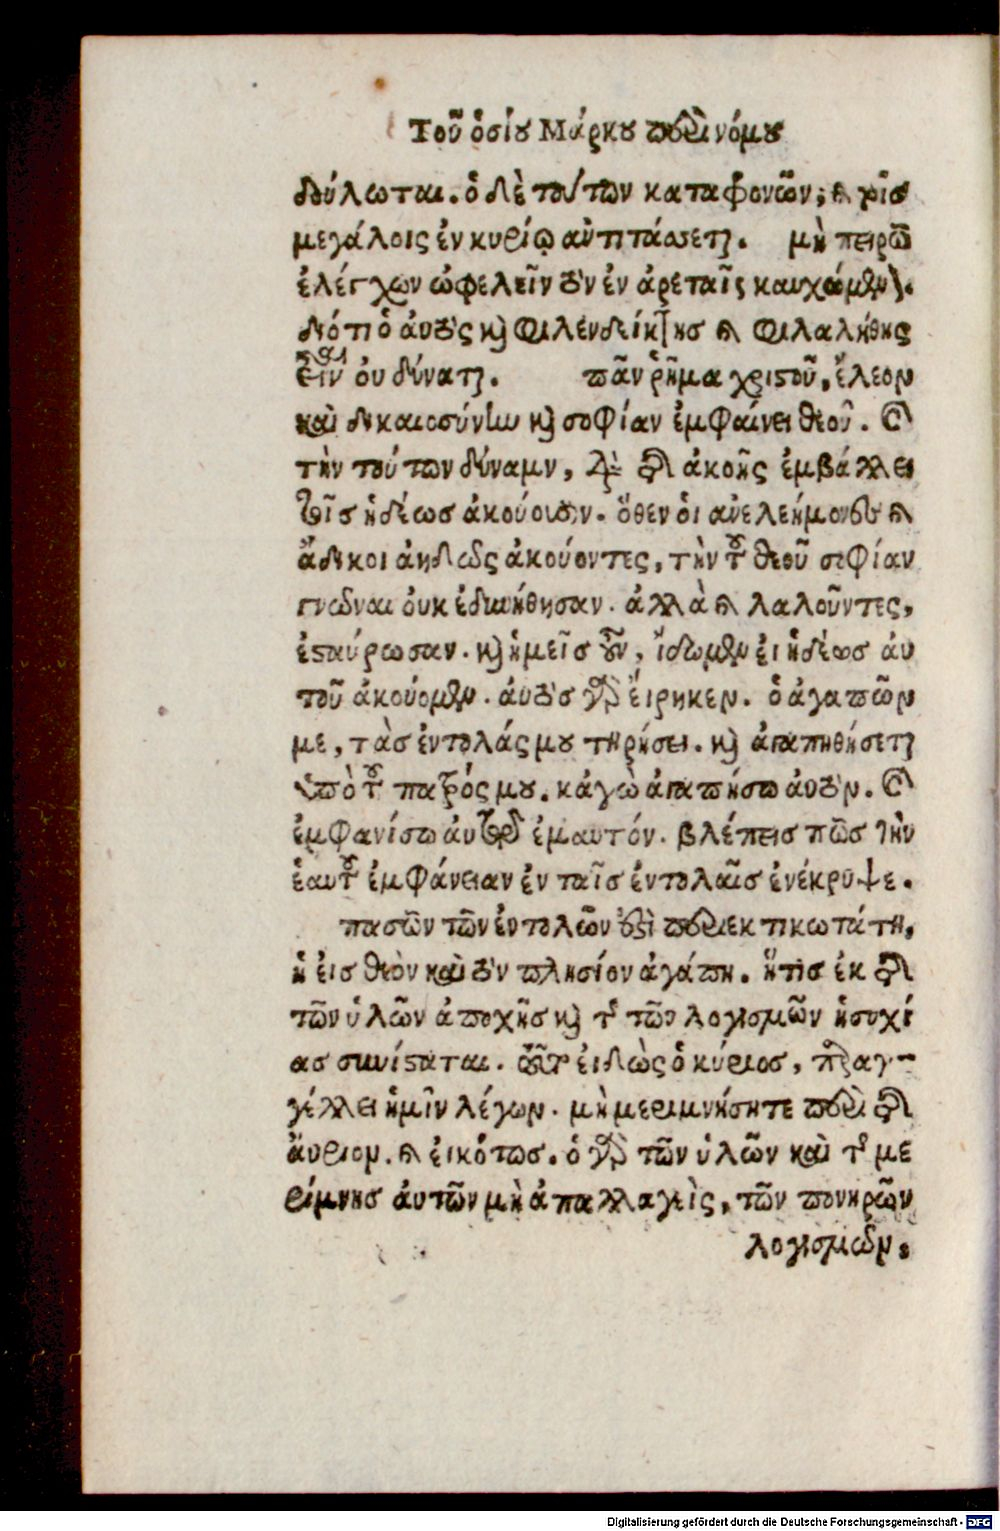 Τοῦ ὁσίου Μάρκου περὶ νόμου
δούλωται. ὁ δὲ τούτων καταφρονῶν, καὶ τοῖς
μεγάλοις ἐν κυρίῳ ἀντιτάσσεται. μὴ πειρῶ
ἐλέγχων ὠφελεῖν τὸν ἐν ἀρεταῖς καυχώμενον.
διότι ὁ αὐτὸς καὶ φιλενδείκτης καὶ φιλαλήθης
εἶναι οὐ δύναται. πᾶν ῥῆμα χριστοῦ, ἔλεον
καὶ δικαιοσύνην καὶ σοφίαν ἐμφαίνει θεοῦ. καὶ
τὴν τούτων δύναμιν, διὰ τῆς ἀκοῆς ἐμβάλλει
τοῖς ἡδέως ἀκούουσιν. ὅθεν ὁι ἀνελεήμονες καὶ
ἄδικοι ἀηδῶς ἀκούοντες, τὴν τοῦ θεοῦ σοφίαν
γνῶναι ὀυκ ἐδυνήθησαν. ἀλλὰ καὶ λαλοῦντες,
ἐσταύρωσαν. καὶ ἡμεῖς οὖν, ἴδωμεν ἐι ἡδέως ἀυ
τοῦ ἀκούομεν. ἀυτὸς γὰρ ἔιρηκεν. ὁ ἀγαπῶν
με, τὰς ἐντολάς μου τηρήσει. καὶ ἀγαπηθήσεται
ὑπὸ τοῦ πατρός μου. κἀγὼ ἀγαπήσω ἀυτὸν. καὶ
ἐμφανίσω ἀυτῷ ἐμαυτόν. βλέπεις πῶς τὴν
ἑαυτοῦ ἐμφάνειαν ἐν ταῖς ἐντολαῖς ἐνέκρυψε.
πασῶν τῶν ἐντολῶν ἐστὶ περιεκτικωτάτη,
ἡ ἐις θεὸν καὶ τὸν πλησίον ἀγάπη. ἥτις ἐκ τῆς
τῶν ὑλῶν ἀποχῆς καὶ τῆς τῶν λογισμῶν ἡσυχί
ας συνίσταται. τοῦτο ἐιδὼς ὁ κύριος, παραγ-
γέλλει ἡμῖν λέγων. μὴ μεριμνήσητε περὶ τῆς
ἄυριον. καὶ ἐικότως. ὁ γὰρ τῶν ὑλῶν καὶ τῆς με
ρίμνης ἀυτῶν μὴ ἀπαλλαγεὶς, τῶν πονηρῶν
λογισμῶν,
Digitalisierung gefördert durch die Deutsche Forschungsgemeinschaft - DFG